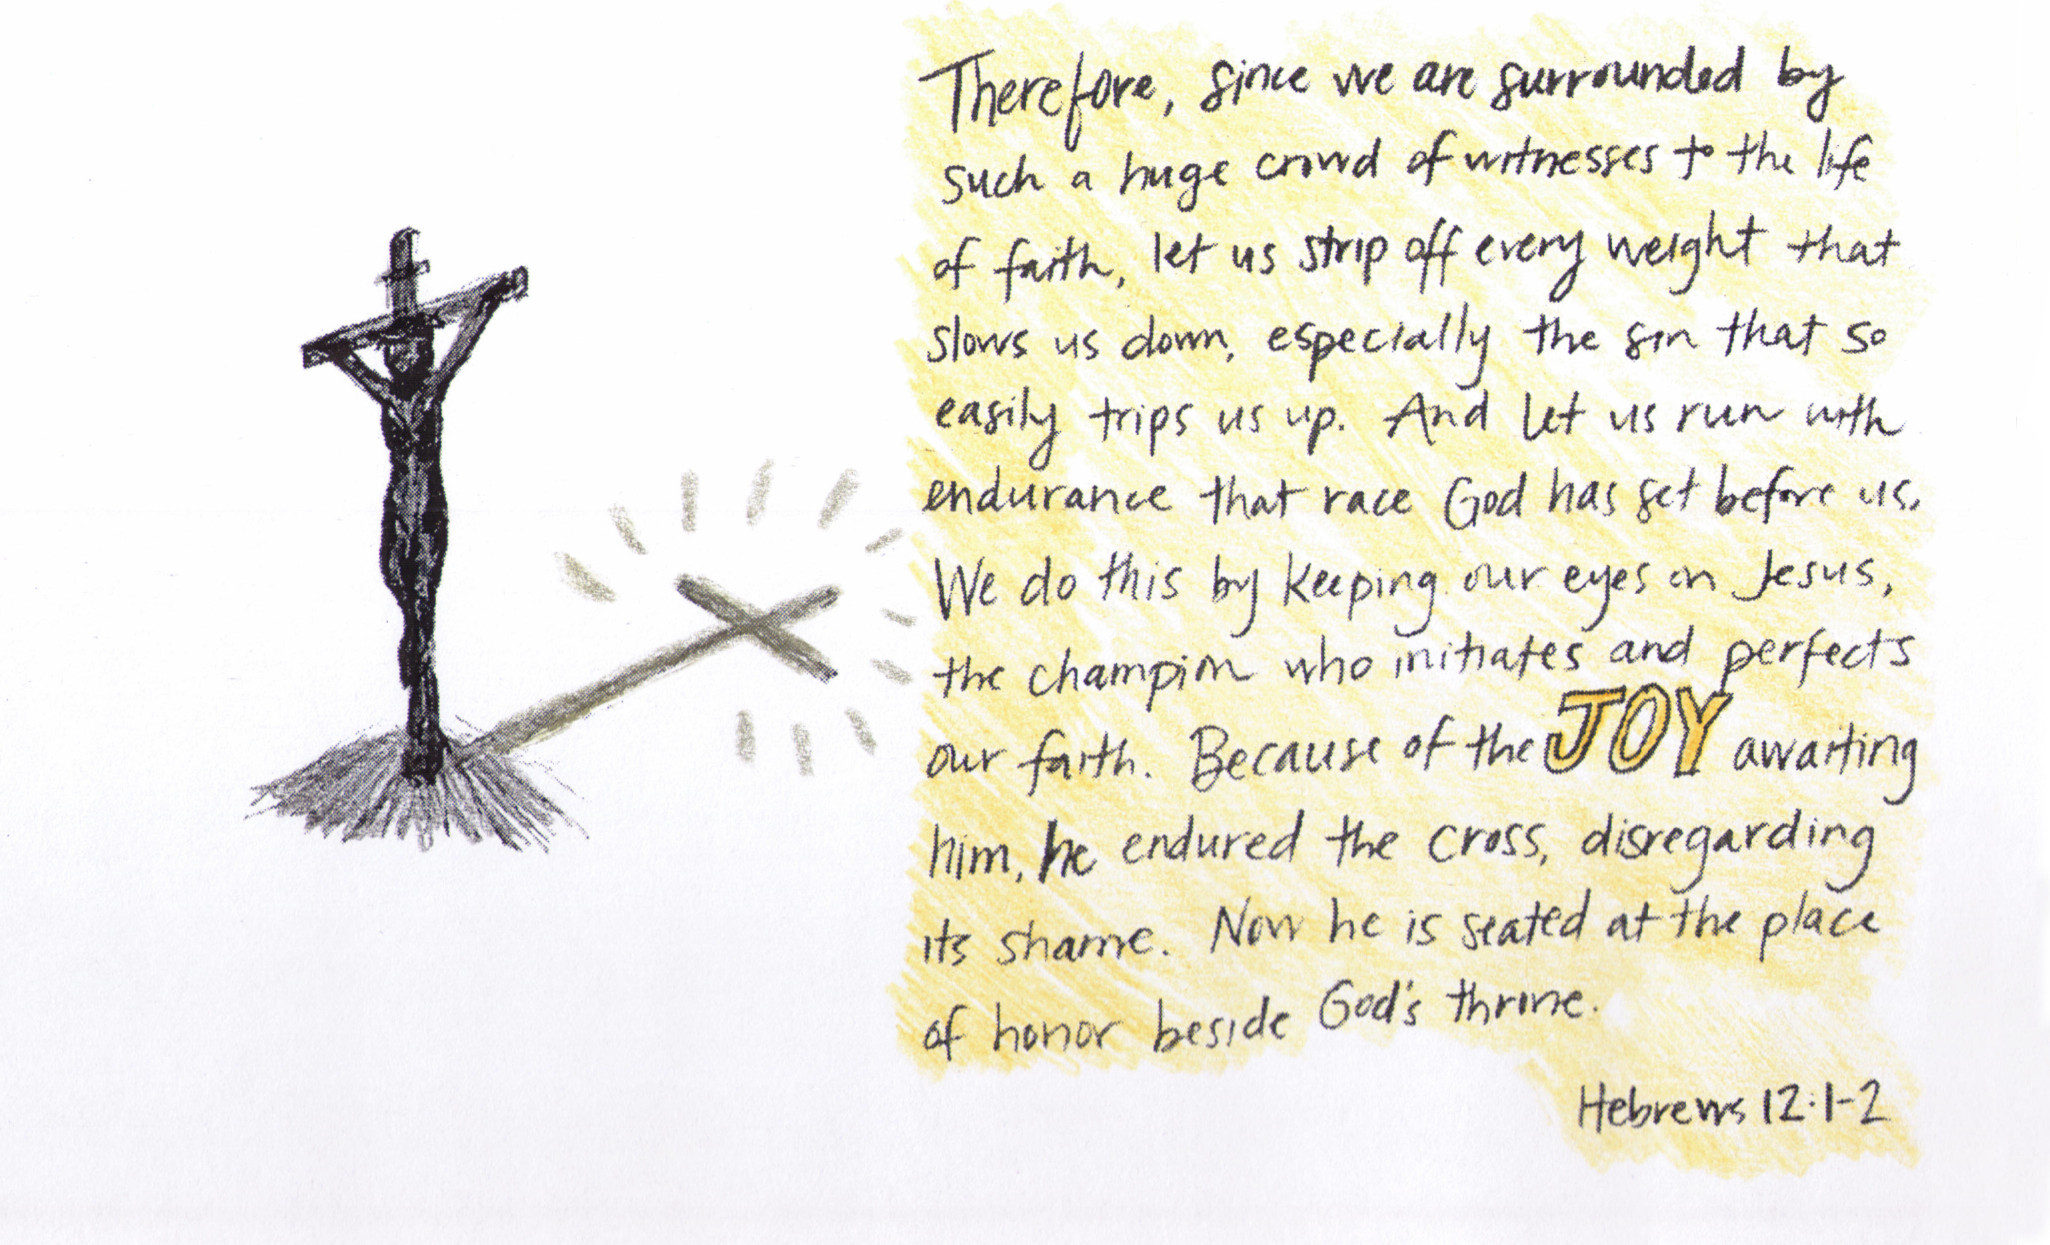 Therefore, since we are surrounded by
such a huge crowd of witnesses to the life
of faith, let us strip off every weight that
slows us down, especially the sin that so
easily trips us up. And let us run with
endurance that race God has set before us.
We do this by keeping our eyes on Jesus,
the champion who initiates and perfects
our faith. Because of the JOY awaiting
him, he endured the cross, disregarding
its shame. Now he is seated at the place
of honor beside God's throne.
Hebrews 12:1-2